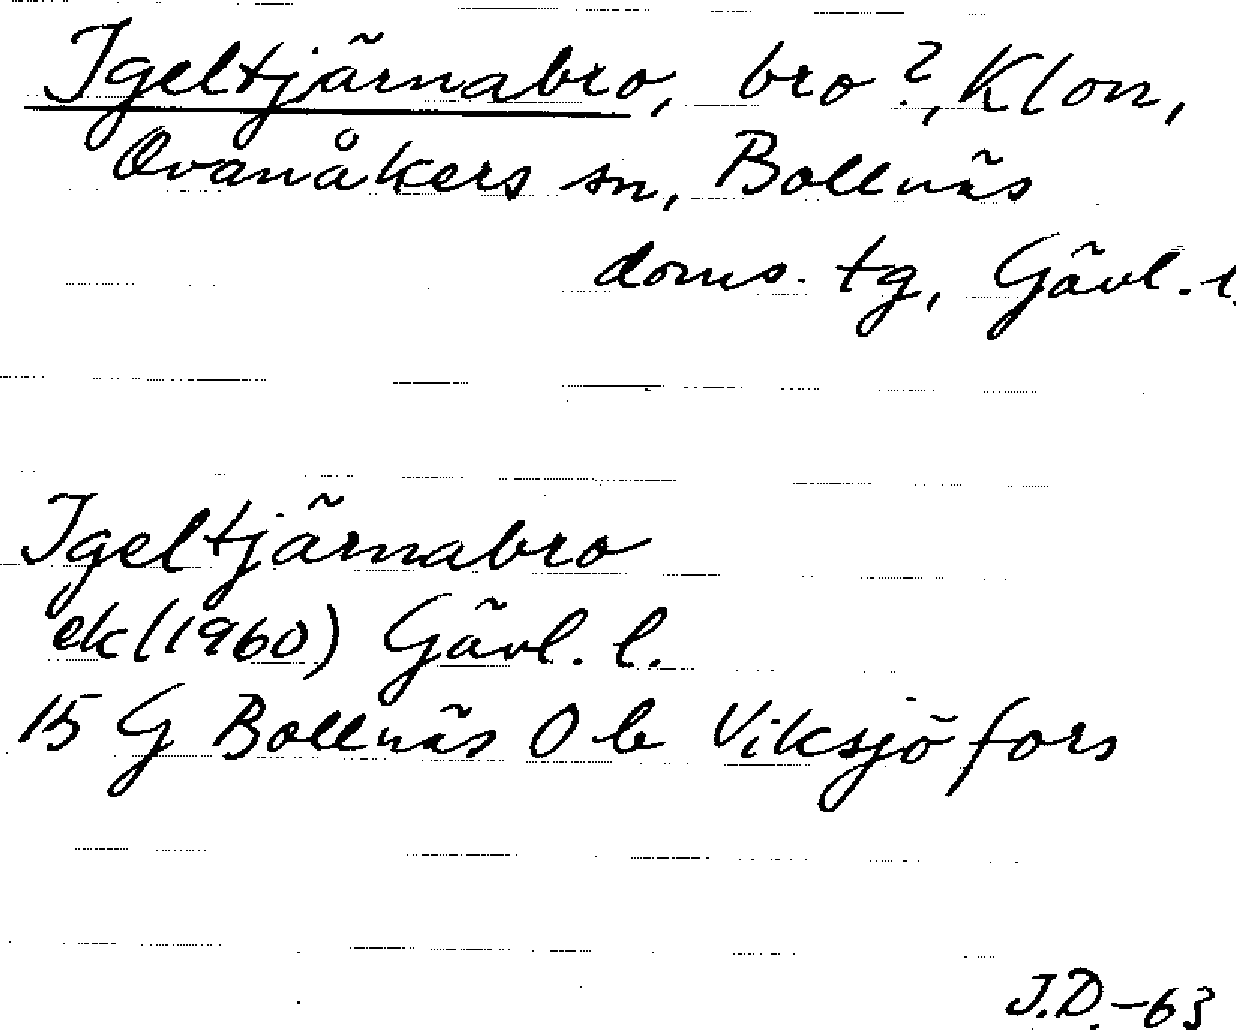 Igeltjärnabro, bro?, Klon,
Ovanåkers sn, Bollnäs
doms. tg, Gävl. l.
Igeltjärnabro
ek (1960) Gävl. l.
15 G Bollnäs O b Viksjöfors
J.D.-63